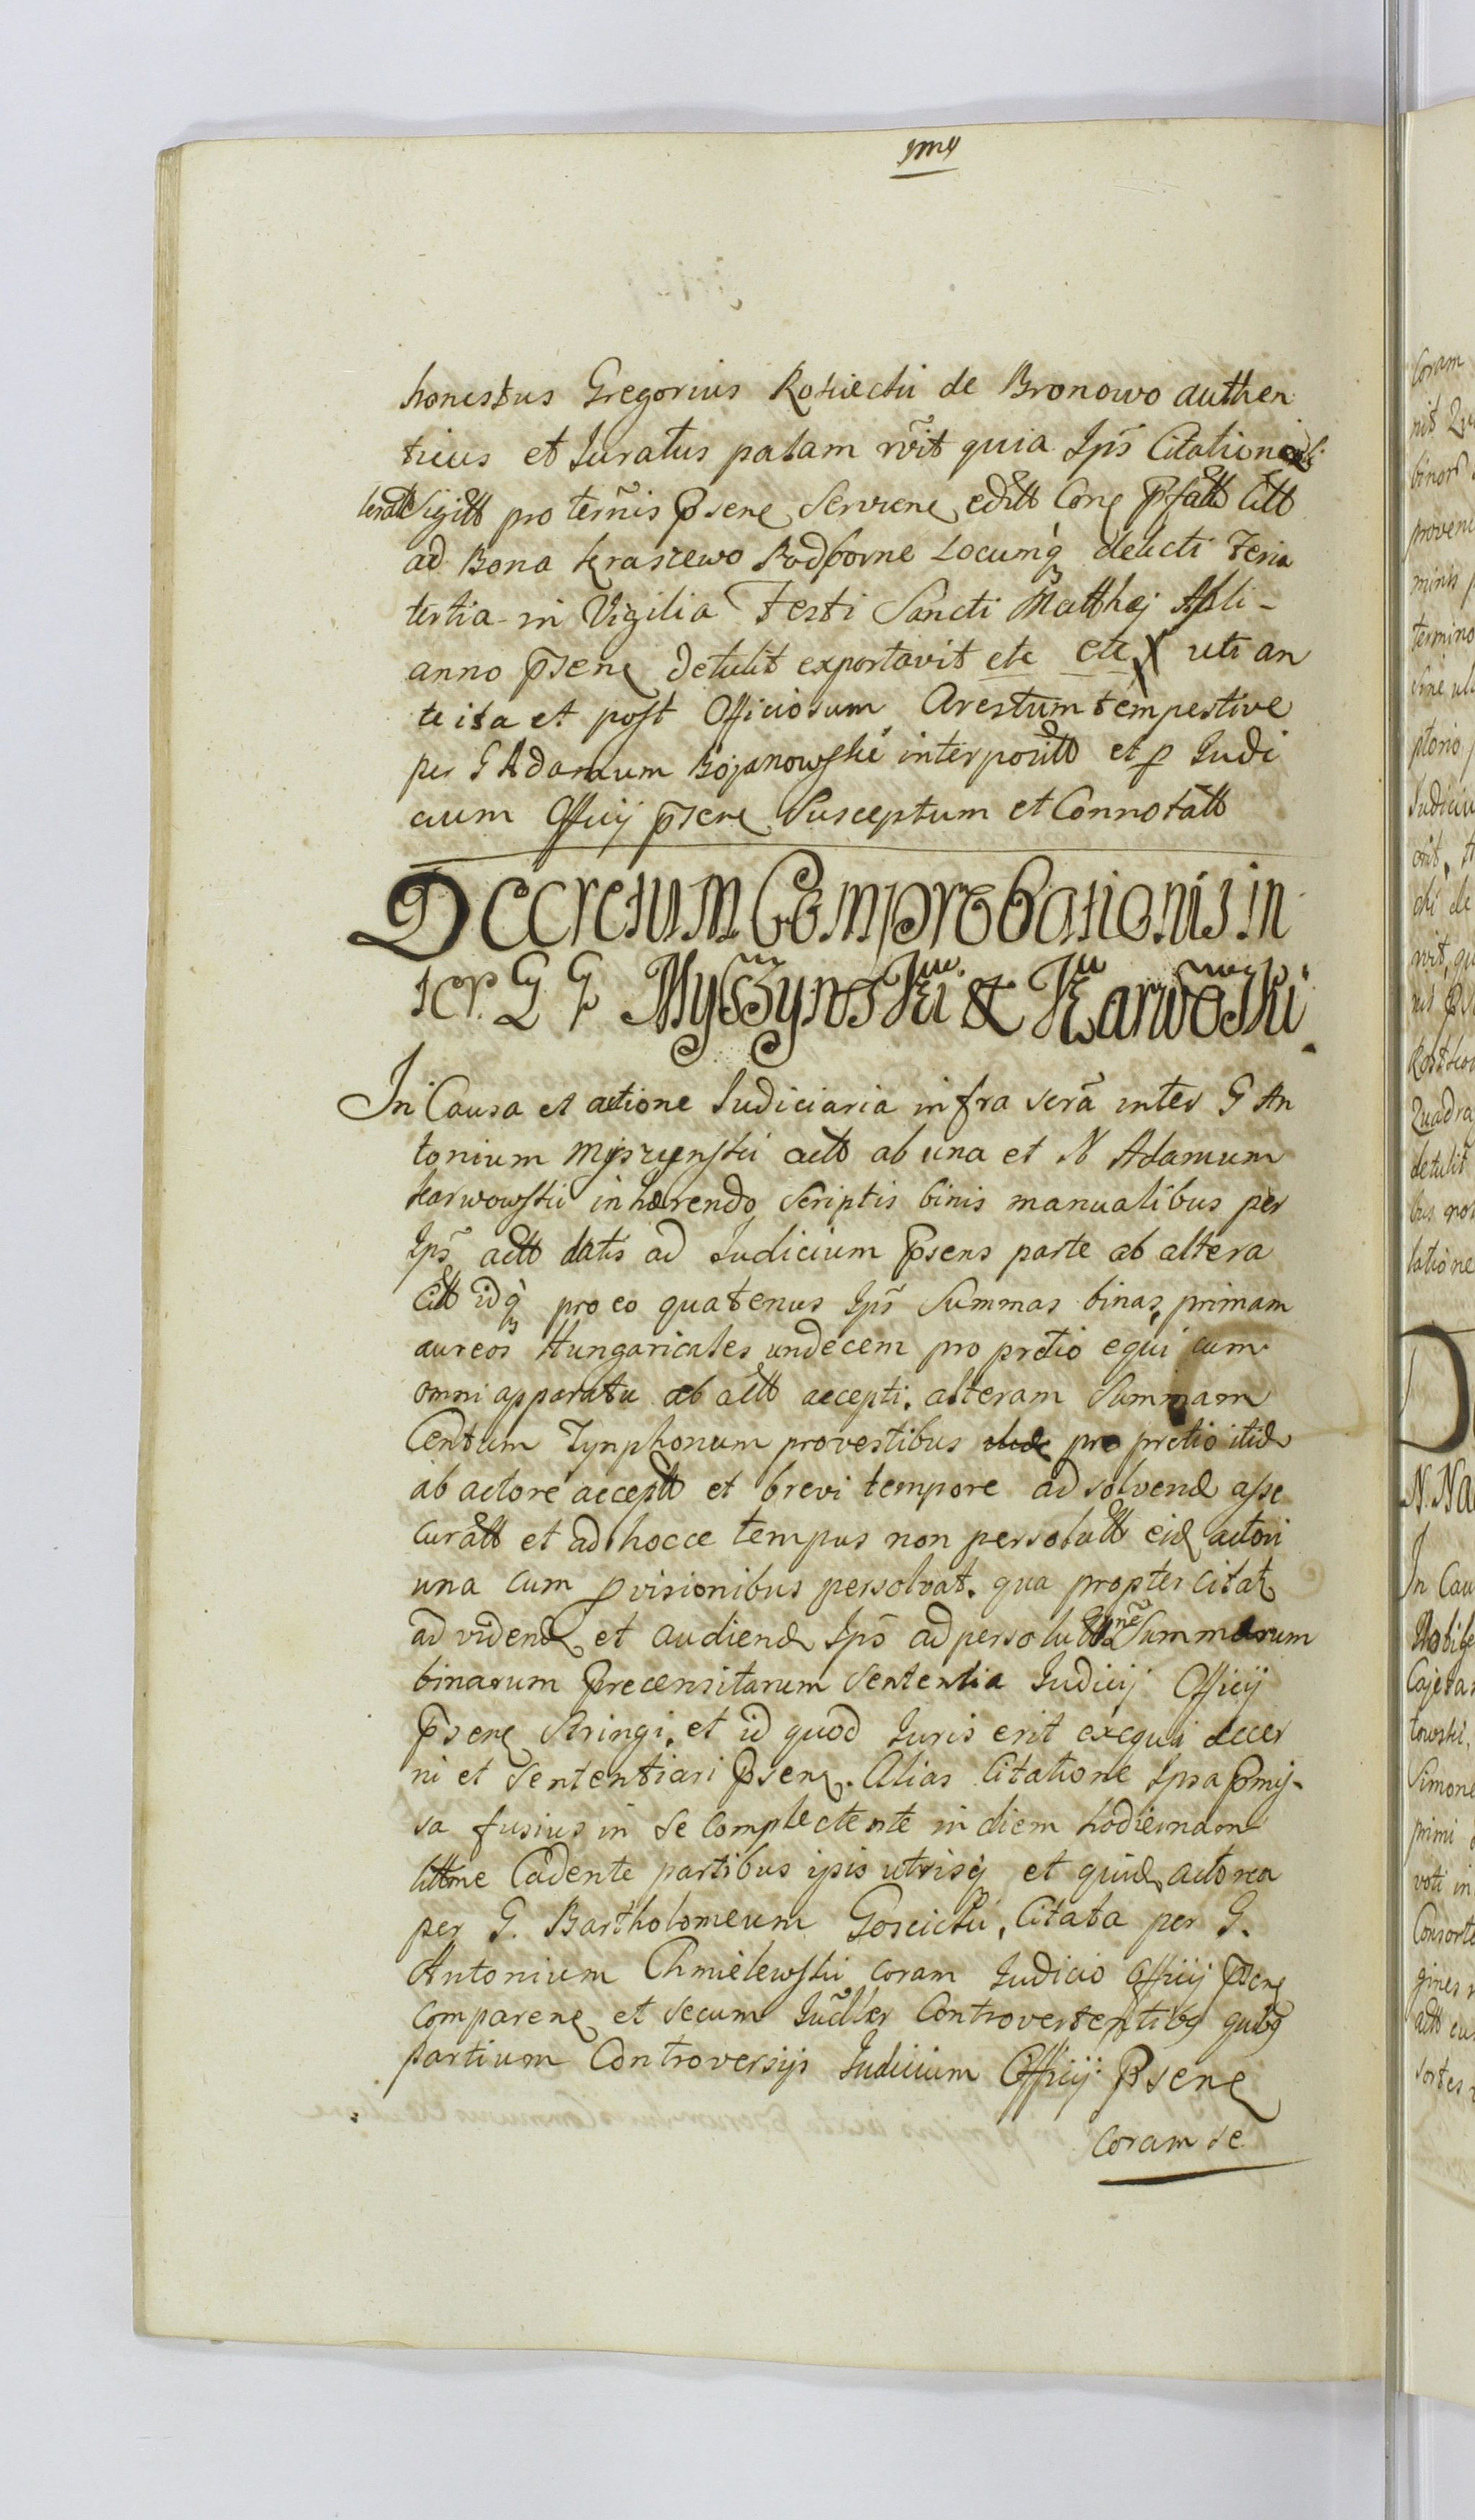 honestus Gregorius Kosiecki de Bronowo authen
ticus et Iuratus palam rõit quia Ips̃ Citationes
Sigill pro term̃is p̃sene Serviene edit Cone p̃fatt Citt
ad Bona Kraszewo Podborne Locumq̃ delicti Feria
tertia in Vigilia Festi Sancti Matthej Apli -
anno p̃sene detulit exportavit etc etc X uti an
te ita et post Officiosum Arestum tempestive
per G Adamum Bojanowski interpositt et p Iudi
cium Officij p̃sene Susceptum et Connotatt
Decretum Comprobationis in
ter G G Myszynski & Karwoski
In Causa et actione Iudiciaria infra scrã inter G An
tonium Myszynski actt ab una et N Adamum
Karwowski inhærendo Scriptis binis manualibus per
Ips̃ actt datis ad Iudicium p̃sens parte ab altera
Citt idq̃ pro eo quatenus Ips̃ Summas binas, primam
aureos Hungaricales undecem pro pretio equi cum
omni apparatu ab actt accepti, alteram Summam
Centum Tynphonum pro vestibus pro pretio itid
ab actore acceptt et brevi tempore ad solvend asse
curatt et ad hocce tempus non persolutt eid actori
una cum pvisionibus persolvat. qua propter citat
ad vidend et audiend Ips̃ ad persolutt nẽ Summarum
binarum precensitarum Sententia Iudicij Officij
p̃sene Stringi, et id quod Iuris erit exequi decer
ni et Sententiari p̃sene. Alias Citatione Ipsa p̃mis-
sa fusius in se complectente in diem hodiernam
littme Cadente partibus ipsis utrisq et quid actorea
per G. Bartholomeum Goscicki, Citata per G.
Antonium Chmielewski coram Iudicio Officij p̃sene
comparene et secum Iudlter Controvertentibg quibg
partium Controversijs Iudicium Officij p̃sene
coram se